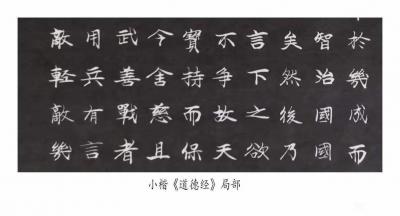 於幾成而
智治國國
矣然後乃
言下之欲
不爭故天
寶持而保
今舍慈且
武善戰者
用兵有言
敵輕敵幾
小楷《道德经》局部